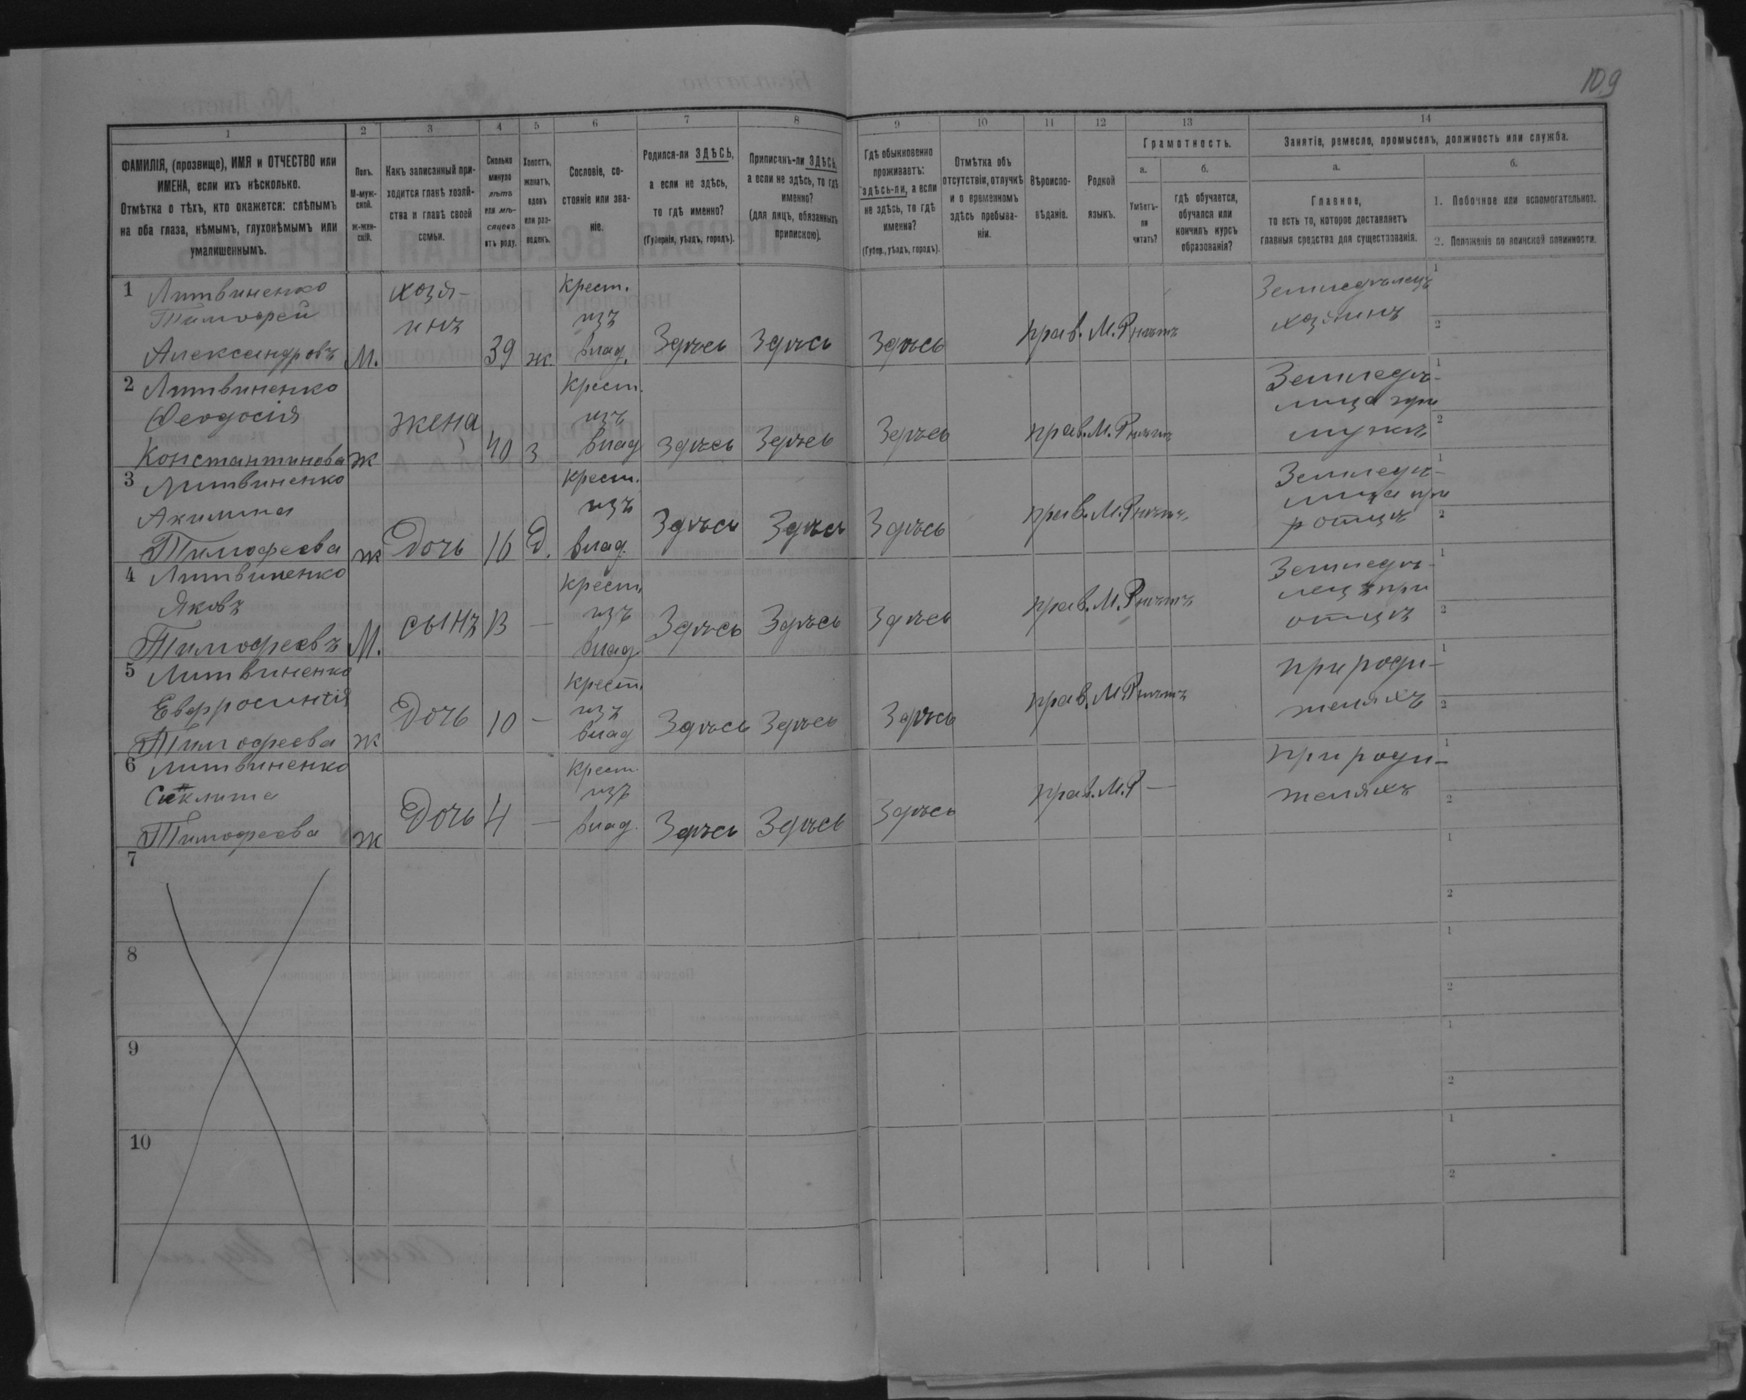 109
1 2 3 4 5 6 7 8 9 10 11 12 13 14
ФАМИЛІЯ, (прозвище), ИМЯ и ОТЧЕСТВО или
ИМЕНА, если ихъ нѣсколько.
Отмѣтка о тѣхъ, кто окажется: слѣпымъ
на оба глаза, нѣмымъ, глухонѣмымъ или
умалишеннымъ.
Полъ.
М-муж-
ской.
Ж-жен-
скій.
Какъ записанный при-
ходится главѣ хозяй-
ства и главѣ своей
семьи.
Сколько
минуло
лѣтъ
или мѣ-
сяцевъ
отъ роду.
Холостъ,
женатъ,
вдовъ
или раз-
веденъ.
Сословіе, со-
стояніе или зва-
ніе.
Родился-ли ЗДѢСЬ,
а если не здѣсь,
то гдѣ именно?
(Губернія, уѣздъ, городъ).
Приписанъ-ли ЗДѢСЬ,
а если не здѣсь, то гдѣ
именно?
(для лицъ, обязанныхъ
припискою).
Гдѣ обыкновенно
проживаетъ:
здѣсь-ли, а если
не здѣсь, то гдѣ
именно?
(Губер., уѣздъ, городъ).
Отмѣтка объ
отсутствіи, отлучкѣ
и о временномъ
здѣсь пребыва-
ніи.
Вѣроиспо-
вѣданіе.
Родной
языкъ.
Грамотность.
а.
Умѣетъ-
ли
читать?
б.
гдѣ обучается,
обучался или
кончилъ курсъ
образованія?
Занятіе, ремесло, промыселъ, должность или служба.
а.
Главное,
то есть то, которое доставляетъ
главныя средства для существованія.
б.
1. Побочное или вспомогательное.
2. Положеніе по воинской повинности.
1 Литвиненко
Тимофей
Александровъ
М.
хозя-
инъ
39
ж.
крест.
изъ
влад.
Здѣсь
Здѣсь
Здѣсь
прав.
М.Р
нѣтъ
Земледѣлецъ
хозяинъ
1
2
2 Литвиненко
Феодосія
Константинова
ж
жена
40
з
крест.
изъ
влад
Здѣсь
Здѣсь
Здѣсь
прав.
М.Р
нѣтъ
Земледѣ-
лица при
мужѣ
1
2
3 Литвиненко
Акилина
Тимофеева
ж
Дочь
16
д.
крест.
изъ
влад.
Здѣсь
Здѣсь
Здѣсь
прав.
М.Р
нѣтъ
Земледѣ-
лица при
отцѣ
1
2
4 Литвиненко
Яковъ
Тимофеевъ
М.
сынъ
13
—
крест.
изъ
влад.
Здѣсь
Здѣсь
Здѣсь
прав.
М.Р
нѣтъ
Земледѣ-
лецъ при
отцѣ
1
2
5 Литвиненко
Евфросинія
Тимофеева
ж
Дочь
10
—
крест.
изъ
влад
Здѣсь
Здѣсь
Здѣсь
прав.
М.Р
нѣтъ
при роди-
теляхъ
1
2
6 Литвиненко
Тимофеева
ж
Дочь
4
—
крест
изъ
влад.
Здѣсь
Здѣсь
Здѣсь
прав.
М.Р
—
при роди-
теляхъ
1
2
7
1
2
8
1
2
9
1
2
10
1
2